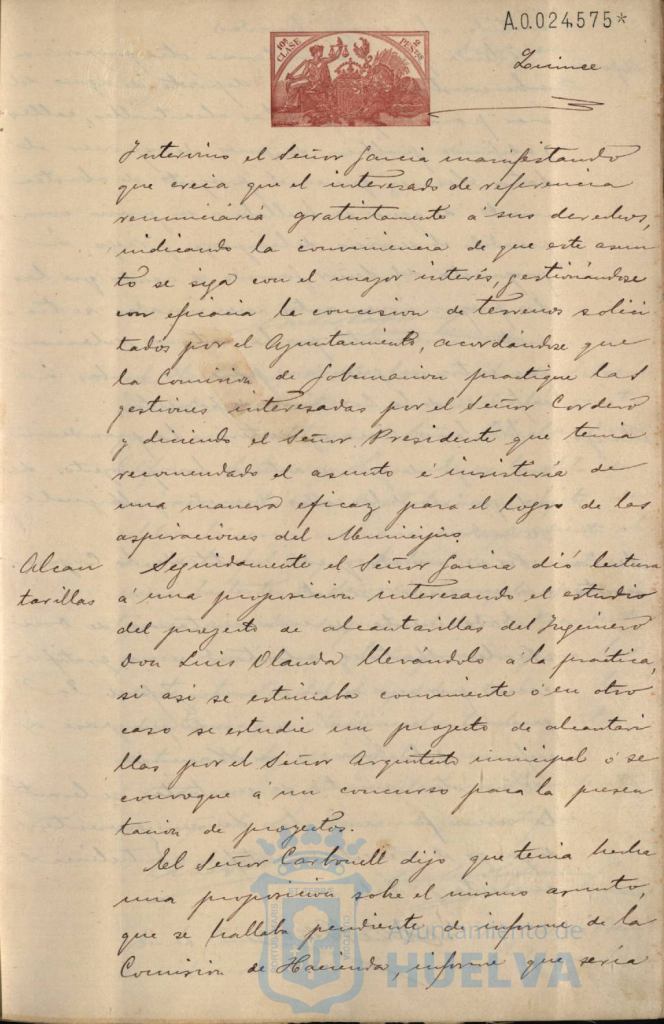 A.0.024,575*
10ª CLASE
2 PESETAS
Quince
Intervino el Señor Garcia manifestando
que creia que el interesado de referencia
renunciaria gratuitamente á sus derechos,
indicando la conveniencia de que este asun
to se siga con el mayor interés, gestionándose
con eficacia la concesion de terrenos solici
tados por el Ayuntamiento, acordándose que
la Comision de Gobernacion practique las
gestiones interesadas por el Señor Cordero
y diciendo el Señor Presidente que tenia
recomendado el asunto é insistiría de
una manera eficaz para el logro de las
aspiraciones del Municipio.
Alcan
tarillas
Seguidamente el Señor Garcia dió lectura
á una proposicion interesando el estudio
del proyecto de alcantarillas del Ingeniero
Don Luis Olanda llevándolo á la práctica,
si asi se estimaba conveniente ó en otro
caso se estudie un proyecto de alcantari
llas por el Señor Arquitecto municipal ó se
convoque á un concurso para la presen
tacion de proyectos.
El Señor Carbonell dijo que tenia hecha
una proposicion sobre el mismo asunto,
que se hallaba pendiente de informe de la
Comision de Hacienda, informe que sería
Ayuntamiento de
HUELVA